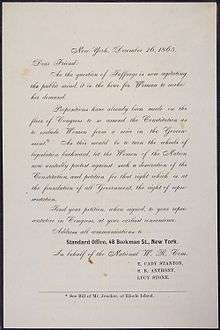 New York, December 26, 1865.
Dear Friend:
As the question of Suffrage is now agitating
the public mind, it is the hour for Woman to make
her demand.
Propositions have already been made on the
floor of Congress to so amend the Constitution as
to exclude Women from a voice in the Govern-
ment.* As this would be to turn the wheels of
legislation backward, let the Women of the Nation
now unitedly protest against such a desecration of the
Constitution, and petition for that right which is at
the foundation of all Government, the right of repre-
sentation.
Send your petition, when signed, to your repre-
sentative in Congress, at your earliest convenience.
Address all communications to
Standard Office, 48 Beekman St., New York.
In behalf of the National W. R. Com.
E. CADY STANTON,
S. B. ANTHONY,
LUCY STONE.
* See Bill of Mr. Jenckes, of Rhode Island.